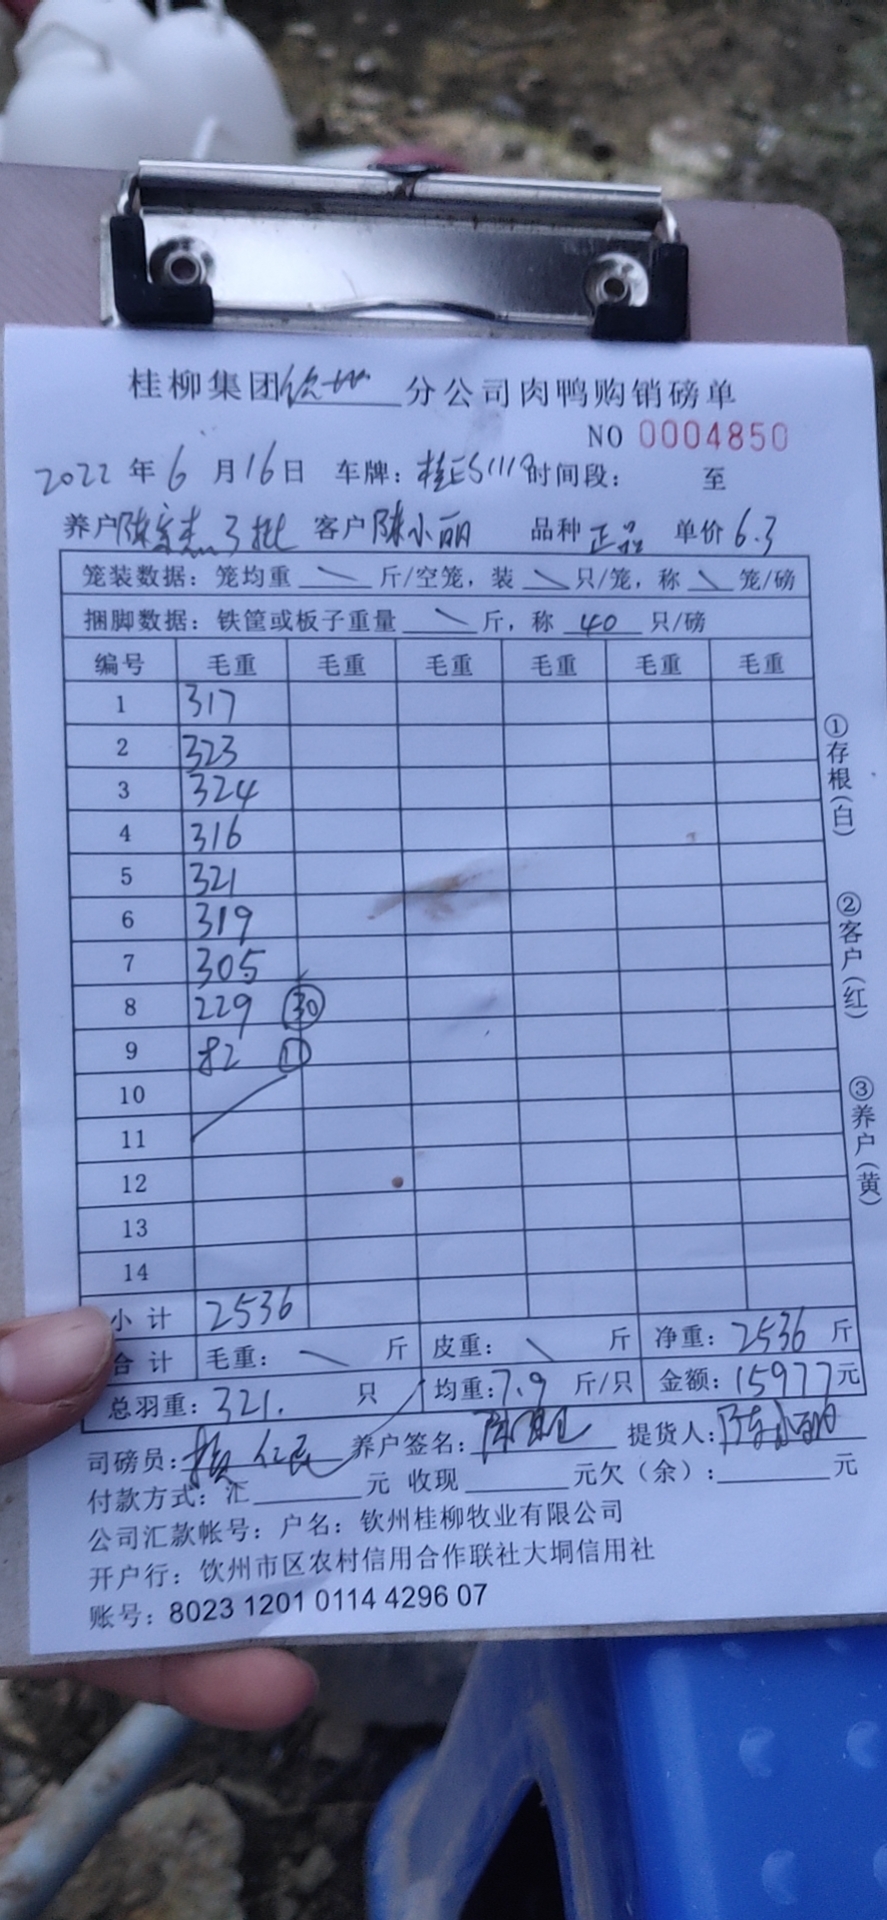 桂柳集团钦州分公司肉鸭购销磅单
NO 0004850
2022年6月16日 车牌:桂E51119时间段: 至
养户陈 3批 客户陈小丽 品种正品 单价6.3
笼装数据:笼均重 \ 斤/空笼,装 \ 只/笼,称 \ 笼/磅
捆脚数据:铁筐或板子重量 \ 斤,称 40 只/磅
编号 毛重 毛重 毛重 毛重 毛重 毛重
1 317
2 323
3 324
4 316
5 321
6 319
7 305
8 229 ㉚
9 82 ⑪
10
11
12
13
14
小计 2536
合计 毛重: \ 斤 皮重: \ 斤 净重:2536 斤
总羽重:321. 只 均重:7.9 斤/只 金额:15977元
司磅员: 养户签名:陈 提货人:陈小丽
付款方式:汇 元 收现 元欠(余): 元
公司汇款帐号:户名:钦州桂柳牧业有限公司
开户行:饮州市区农村信用合作联社大垌信用社
账号:8023 1201 0114 4296 07
①存根(白)
②客户(红)
③养户(黄)